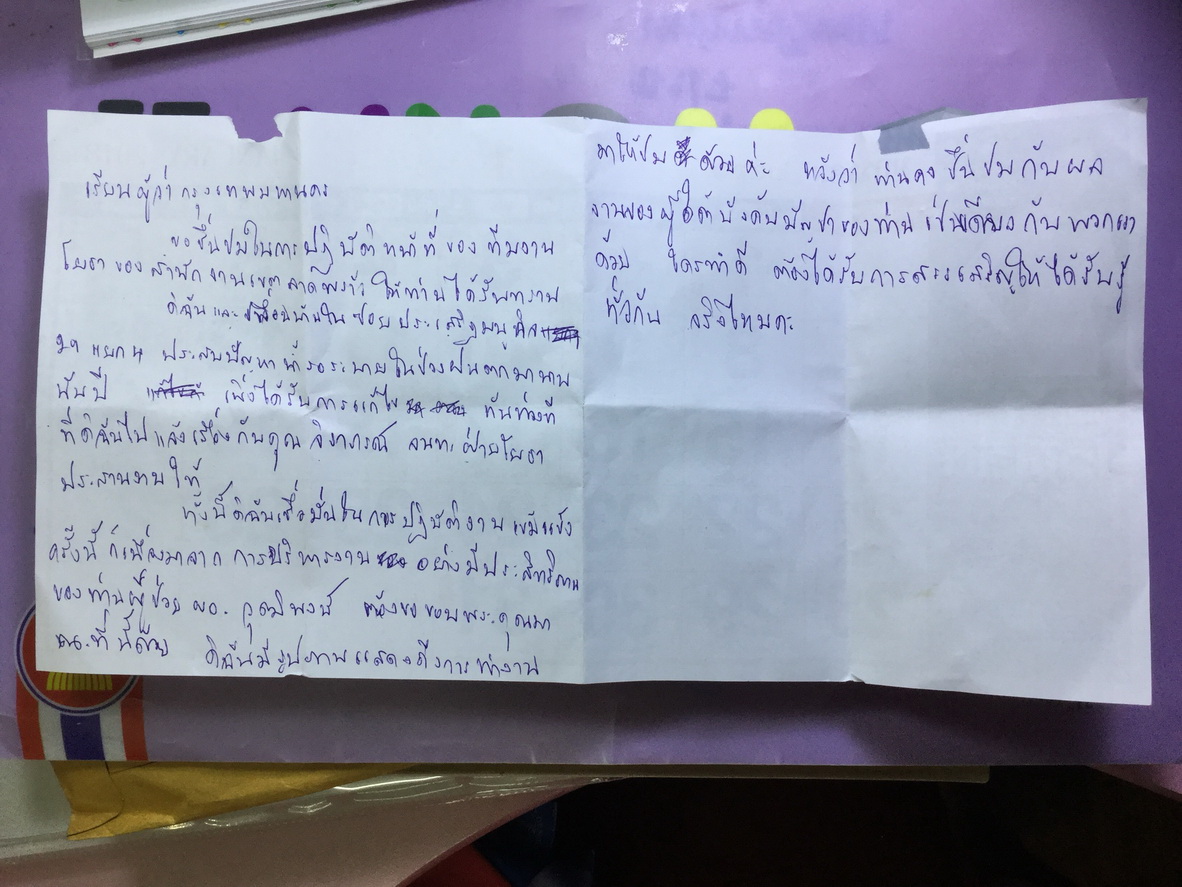 เรียนผู้ว่า กรุงเทพมหานคร
ขอชื่นชมในการปฏิบัติหน้าที่ ของ ทีมงาน
โยธา ของ สำนักงานเขต ลาดพร้าว ให้ท่านได้รับทราบ
ดิฉัน และ เพื่อนบ้านใน ซอย ประเสริฐมนูกิจ
แยก ประสบปัญหาน้ำรอระบายในช่วงฝนตกมานาน
นับปี เพิ่งได้รับการแก้ไข ทันท่วงที
ที่ดิฉันไปแจ้งเรื่องกับคุณ จิราภรณ์ ฝ่ายโยธา
ประสานงาน ให้
ทั้งนี้ดิฉันเชื่อมั่นในการปฏิบัติงาน เข้มแข็ง
ครั้งนี้ ก็เนื่องมาจาก การบริหารงาน อย่างมีประสิทธิภาพ
ของท่านผู้ช่วย ผอ. วุฒิพงษ์ ต้องขอขอบพระคุณมา
ณ.ที่นี้ด้วย ดิฉันมีรูปภาพแสดงถึงการทำงาน
มาให้ชม ด้วย ค่ะ หวังว่า ท่านคง ชื่นชมกับผล
งานของผู้ใต้บังคับบัญชาของท่าน เช่นเดียวกับ พวกเรา
ด้วย ใครทำดี ต้องได้รับการสรรเสริญให้ได้รับรู้
ทั่วกัน จริงไหมคะ